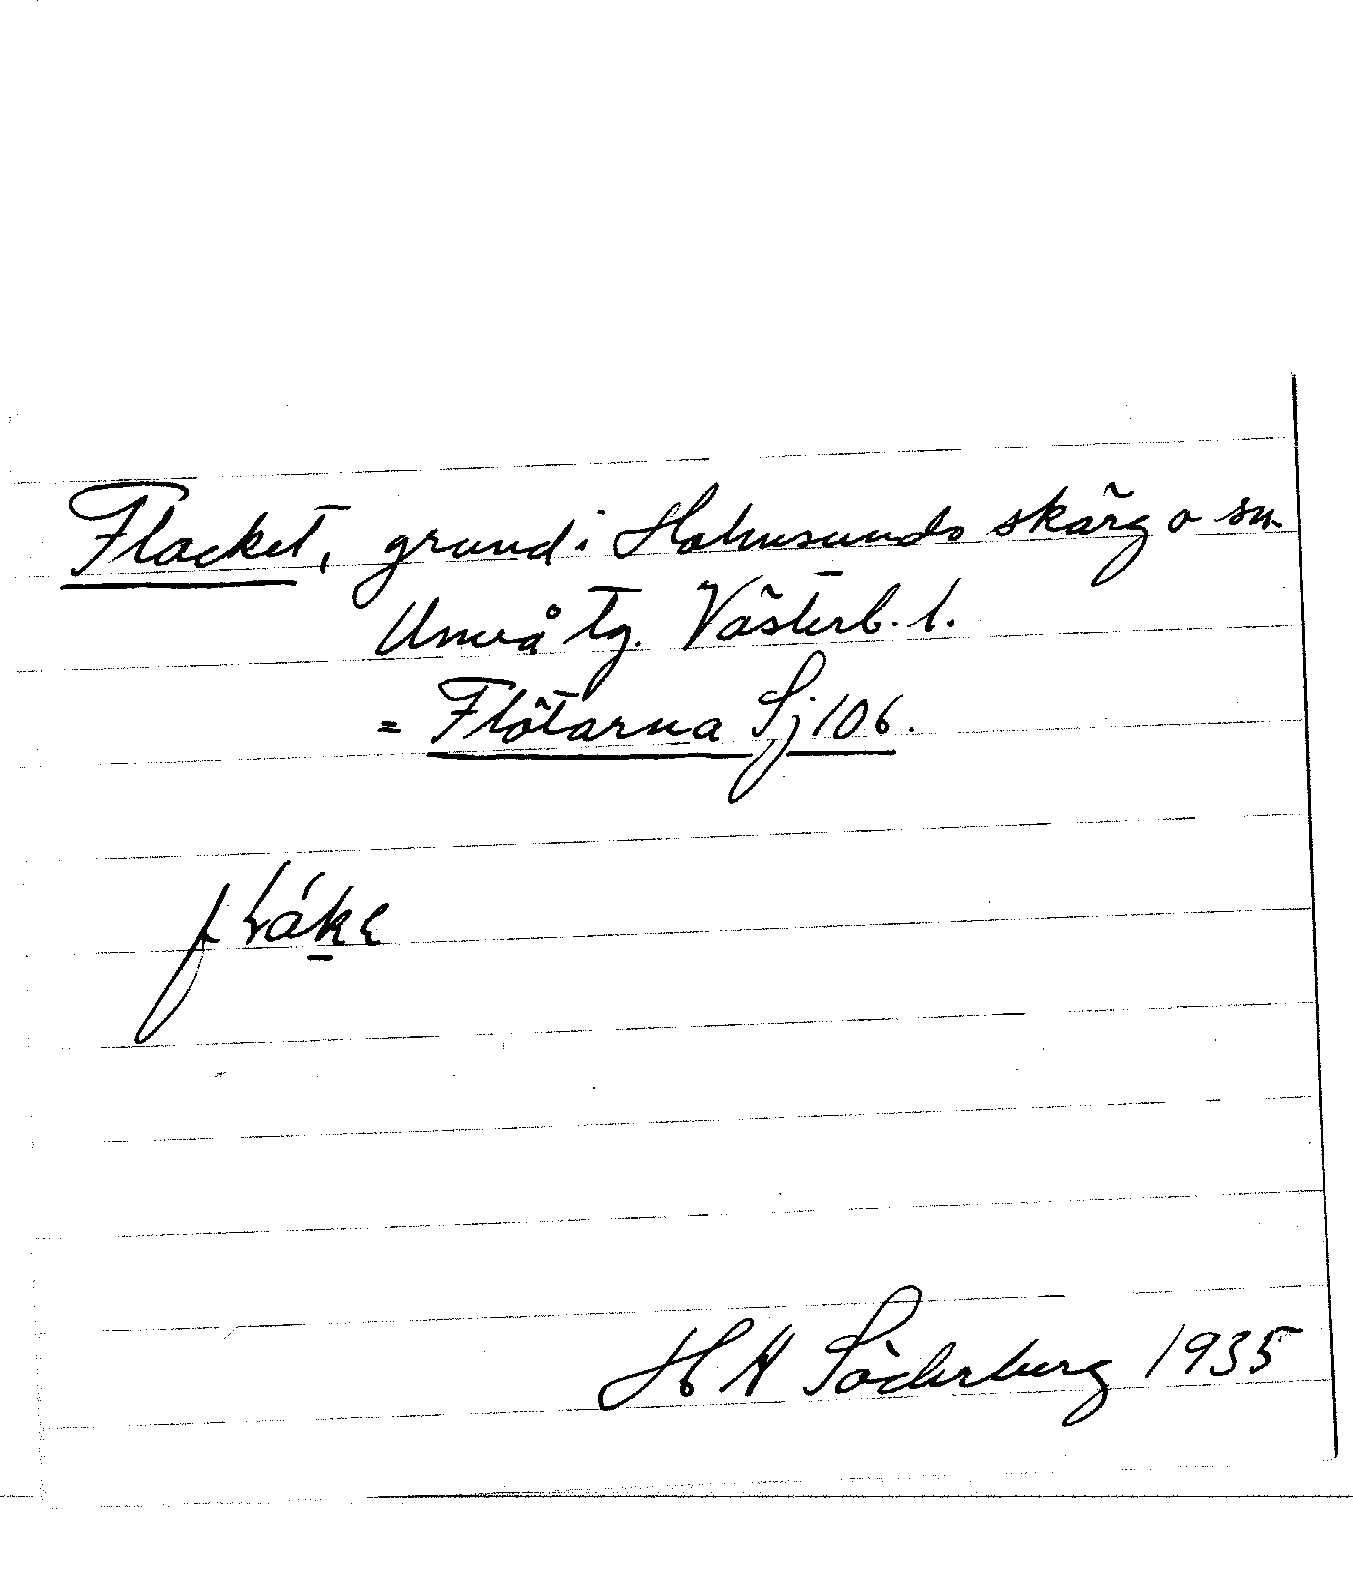 Flacket, grund i Holmsunds skärg o sn
Umeå tg. Västerb. l.
= Flötarna Sj 106.
H A Söderberg 1935